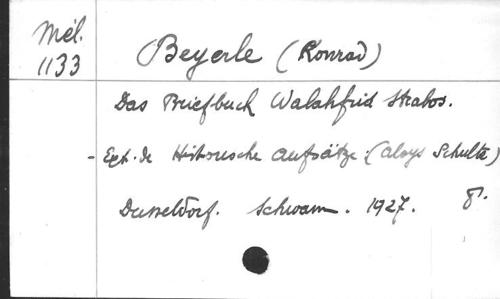 Mél.
1133
Beyerle (Konrad)
Das Briefbuch Walahfrid Strabos.
- Ext. de Historische Aufsätze. (Aloys Schulte)
Dusseldorf. Schwann. 1927. 8°.